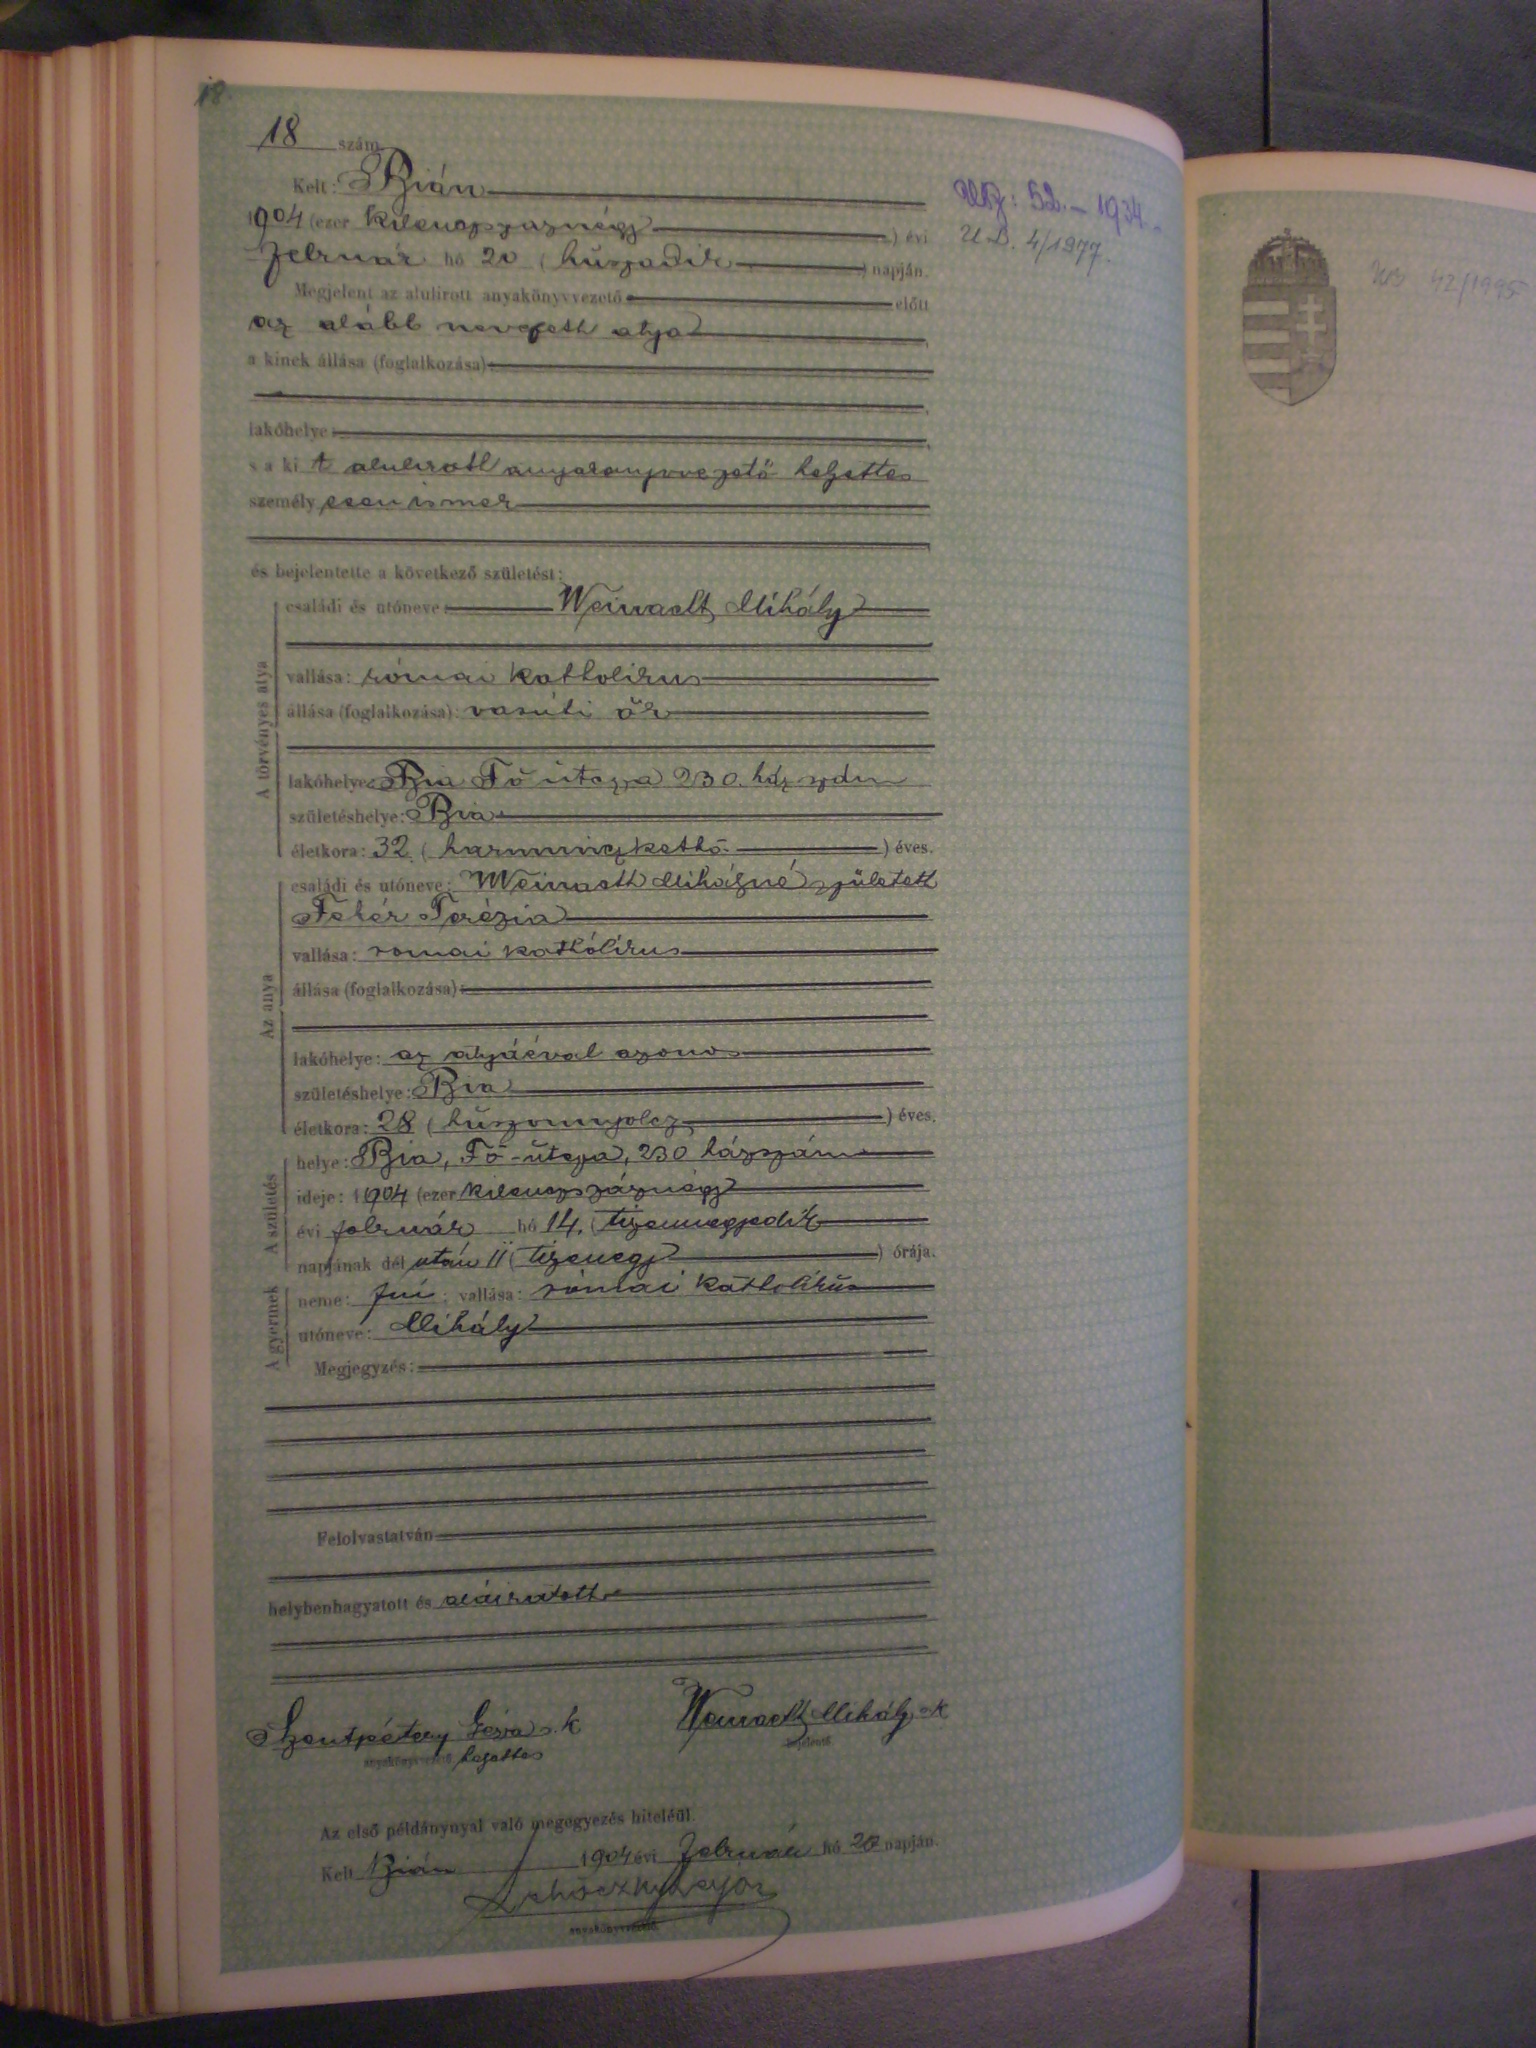 18
18 szám
Kelt: Bián
1904 (ezer kilenczszáznégy) évi
február hó 20 (húszadik) napján.
Megjelent az alulirott anyakönyvvezető előtt
az alább nevezett atya
a kinek állása (foglalkozása)
lakóhelye
s a ki t alulirott anyakönyvvezető helyettes
személyesen ismer
és bejelentette a következő születést:
A törvényes atya
családi és utóneve: Weinaelt Mihály
vallása: római katholikus
állása (foglalkozása): vasúti őr
lakóhelye: Bia Fő útcza 230. ház szám
születéshelye: Bia
életkora: 32 (harminczkettő) éves.
Az anya
családi és utóneve: Weinaelt Mihályné született
Fehér Terézia
vallása: romai katholikus
állása (foglalkozása):
lakóhelye: az atyáéval azonos
születéshelye: Bia
életkora: 28 (húszonnyolcz) éves.
A születés
helye: Bia, Fő-útcza, 230 házszám
ideje: 1904 (ezer kilenczszáznégy
évi február hó 14. (tizennegyedik
napjának dél után 11 (tizenegy) órája.
A gyermek
neme: fiú; vallása: római katholikus
utóneve: Mihály
Megjegyzés:
Felolvastatván
helybenhagyatott és aláiratott
Szentpétery Géza s. k. Weinaelt Mihály s k
anyakönyvvezető helyettes bejelentő
Az első példánynyal való megegyezés hiteléül.
Kelt Bián 1904 évi február hó 20 napján.
anyakönyvvezető.
52. – 1934.
U.D. 4/1977.
42/1995